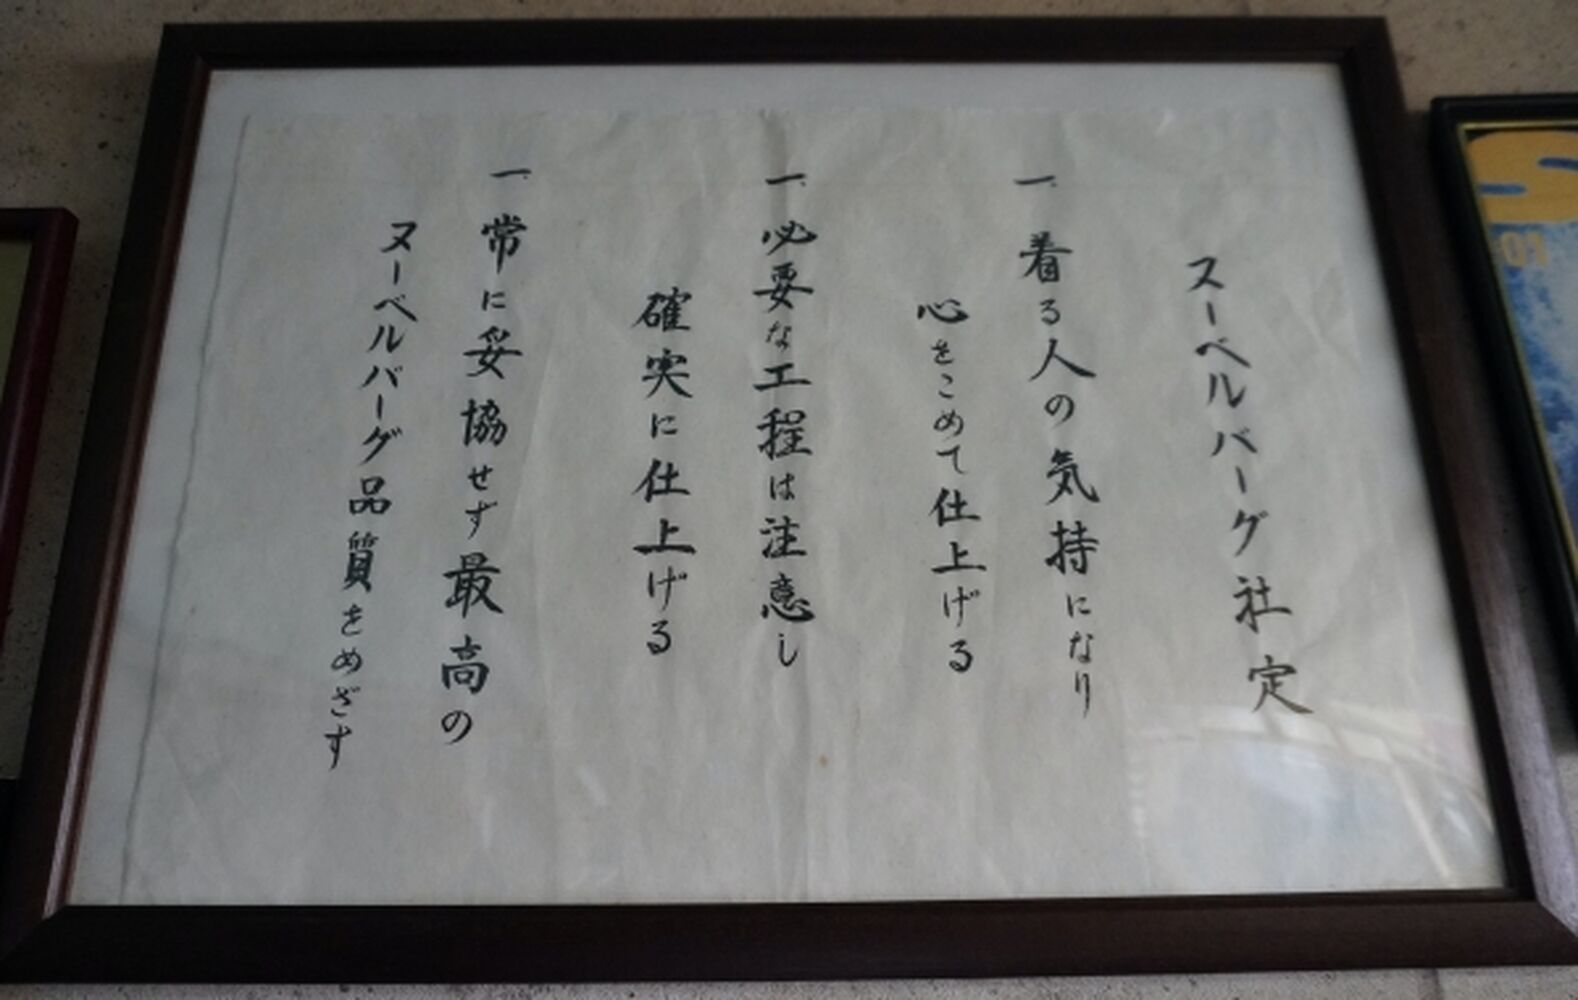 スーベルバーグ社定
一、着る人の気持になり
心をこめて仕上げる
一、必要な工程は注意し
確実に仕上げる
一、常に妥協せず最高の
ヌーベルバーグ品質をめざす